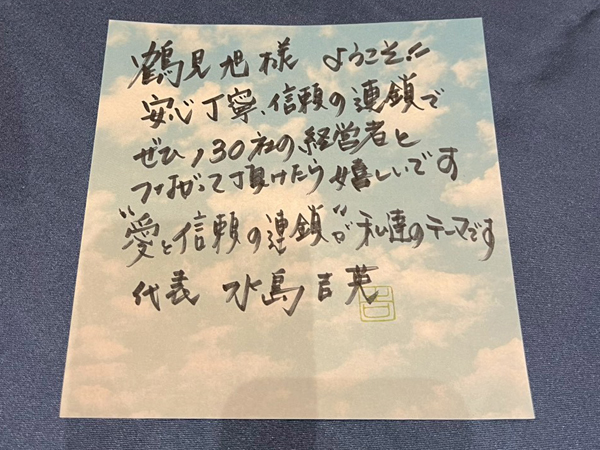 鶴見旭様 ようこそ!!
安心丁寧、信頼の連鎖で
ぜひ130社の経営者と
つながって頂けたら嬉しいです
"愛と信頼の連鎖"が私達のテーマです
代表 水島吉英